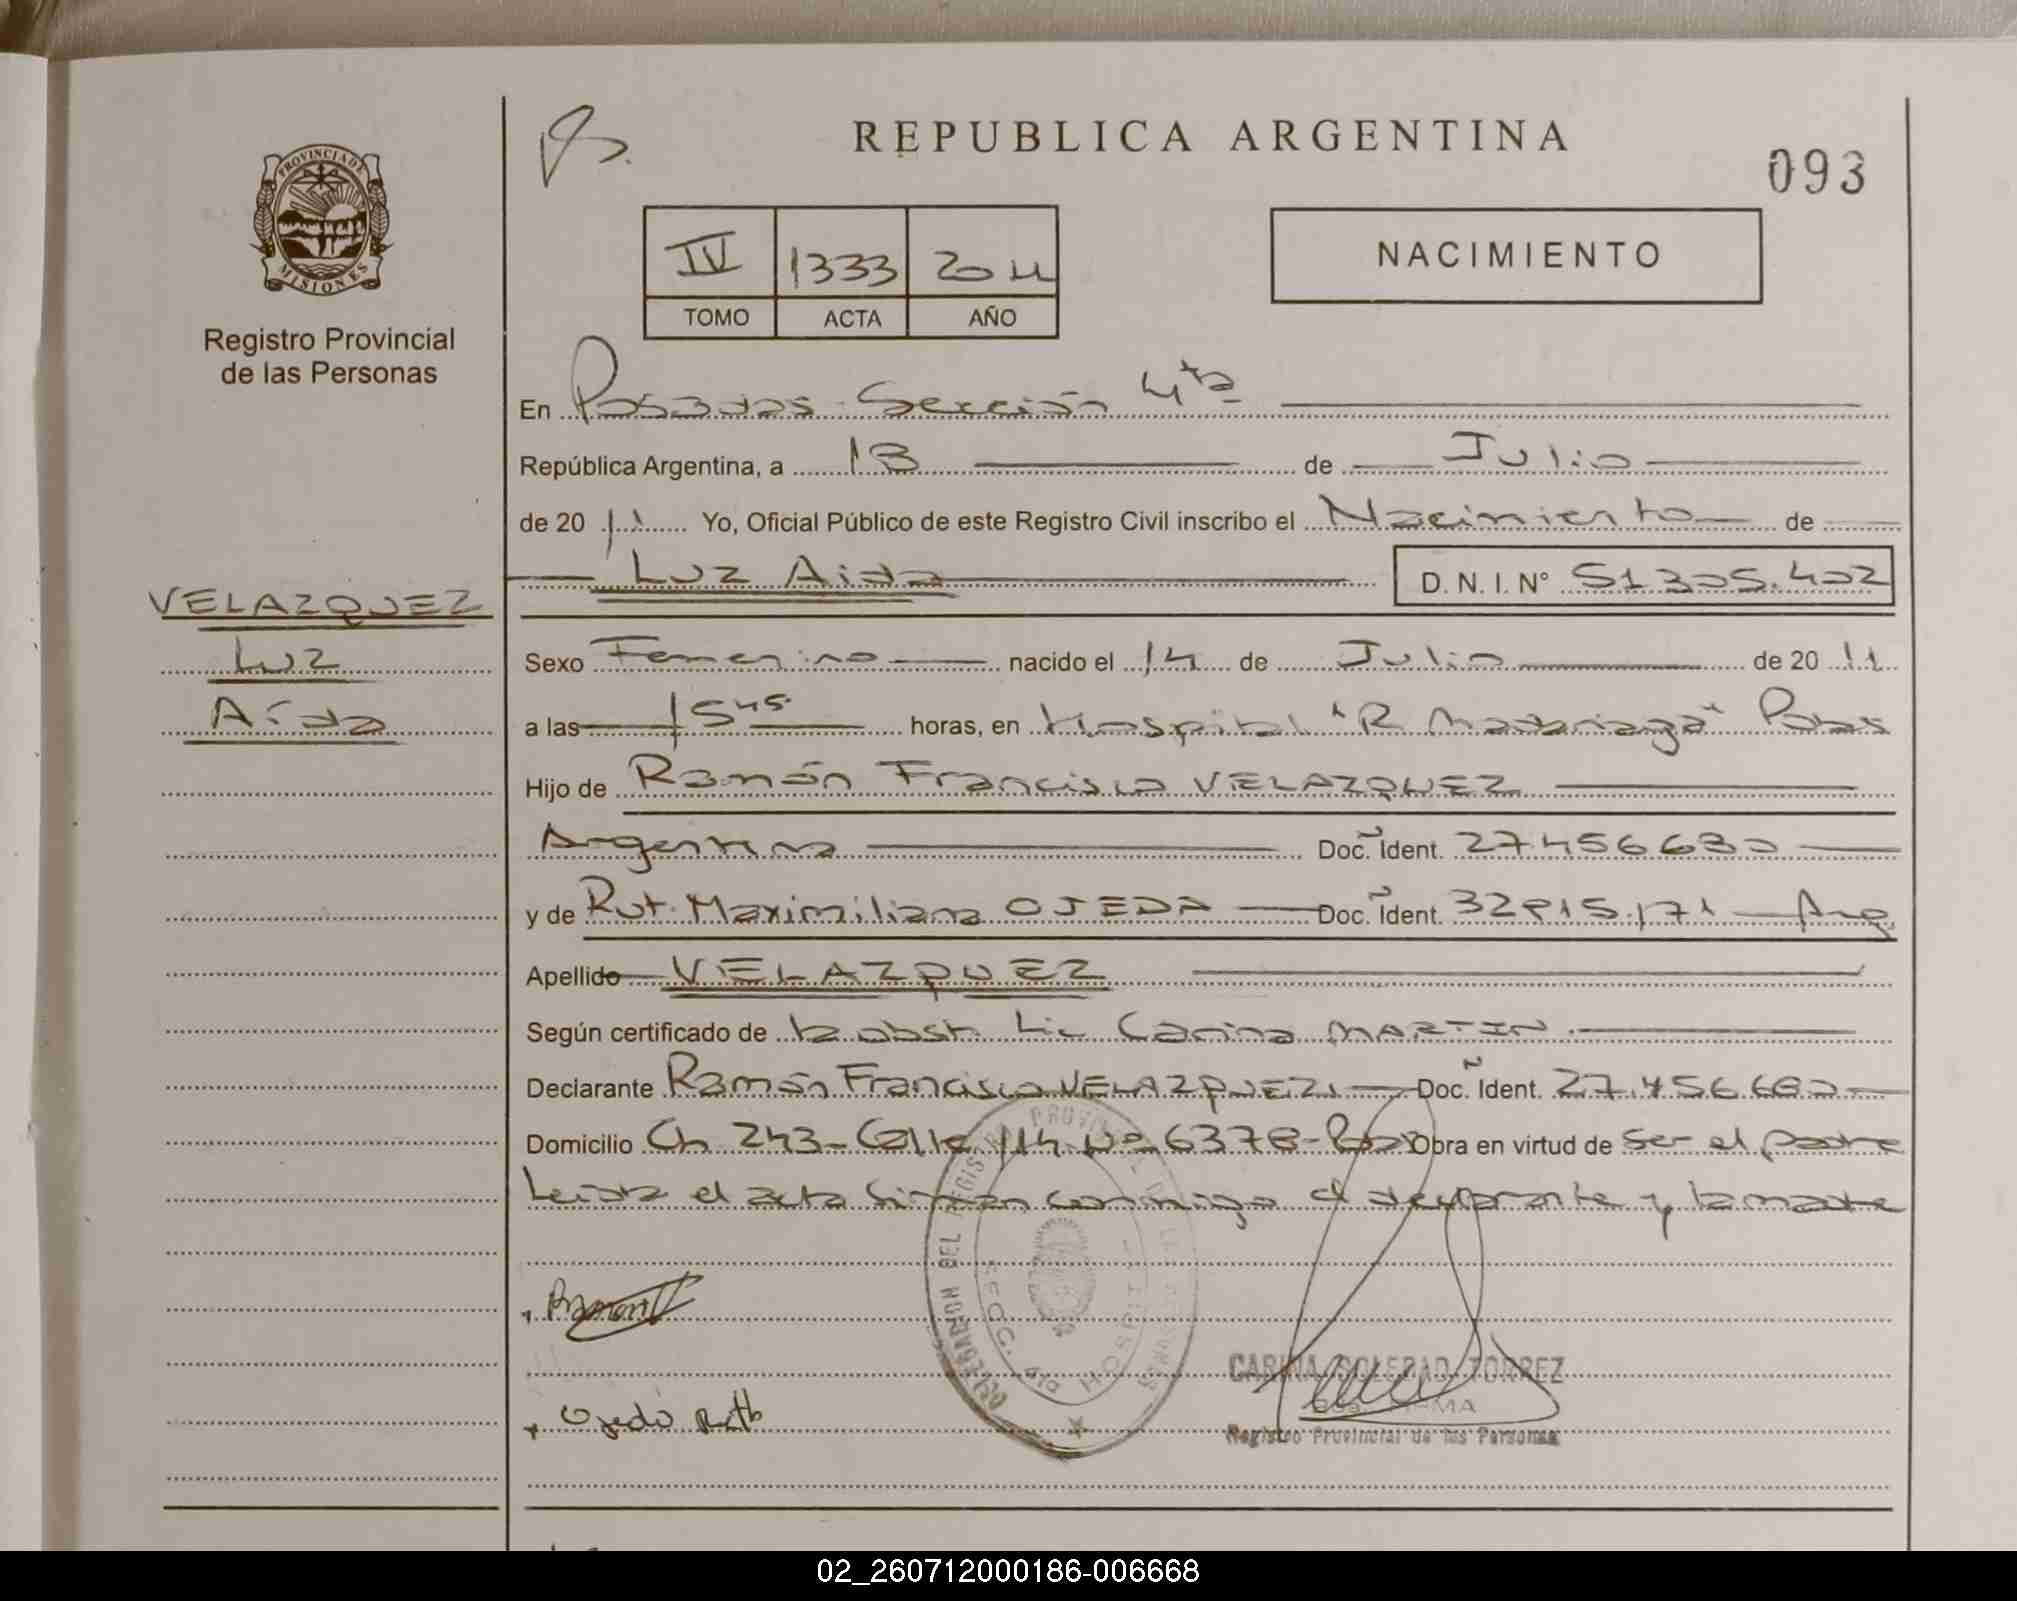 REPUBLICA ARGENTINA
093
PROVINCIA DE MISIONES
Registro Provincial
de las Personas
IV 1333 2011
TOMO ACTA AÑO
NACIMIENTO
En Posadas - Sección 4ta
República Argentina, a 13 de Julio
de 20 11 Yo, Oficial Público de este Registro Civil inscribo el Nacimiento de
Luz Aida D.N.I. N° 51.305.402
VELAZQUEZ
Luz
Aída
Sexo Femenino nacido el 14 de Julio de 20 11
a las 15 45 horas, en Hospital "R Madariaga" Pdas
Hijo de Ramón Francisco VELAZQUEZ
Argentina Doc. Ident. 27.456.680
y de Rut Maximiliana OJEDA Doc. Ident. 32.815.171 Arg.
Apellido VELAZQUEZ
Según certificado de la obst. Lic Carina MARTIN
Declarante Ramón Francisco VELAZQUEZ Doc. Ident. 27.456.680
Domicilio Ch 243 - Calle 114 Nº 6378 - Obra en virtud de ser el padre
Leida el acta firman conmigo el declarante y la madre
DELEGACION DEL REGISTRO PROVINCIAL DE LAS PERSONAS
SECC. 4ta HOSPITAL
Ramon
Ojeda Ruth
CARINA SOLEDAD TORREZ
FIRMA
Registro Provincial de las Personas
02_260712000186-006668